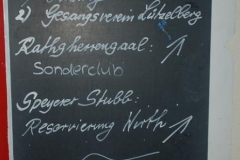 2) Gesangsverein Lützelberg
Rathsherrensaal:
Sonderclub
Speyerer Stubb:
Reservierung Wirth